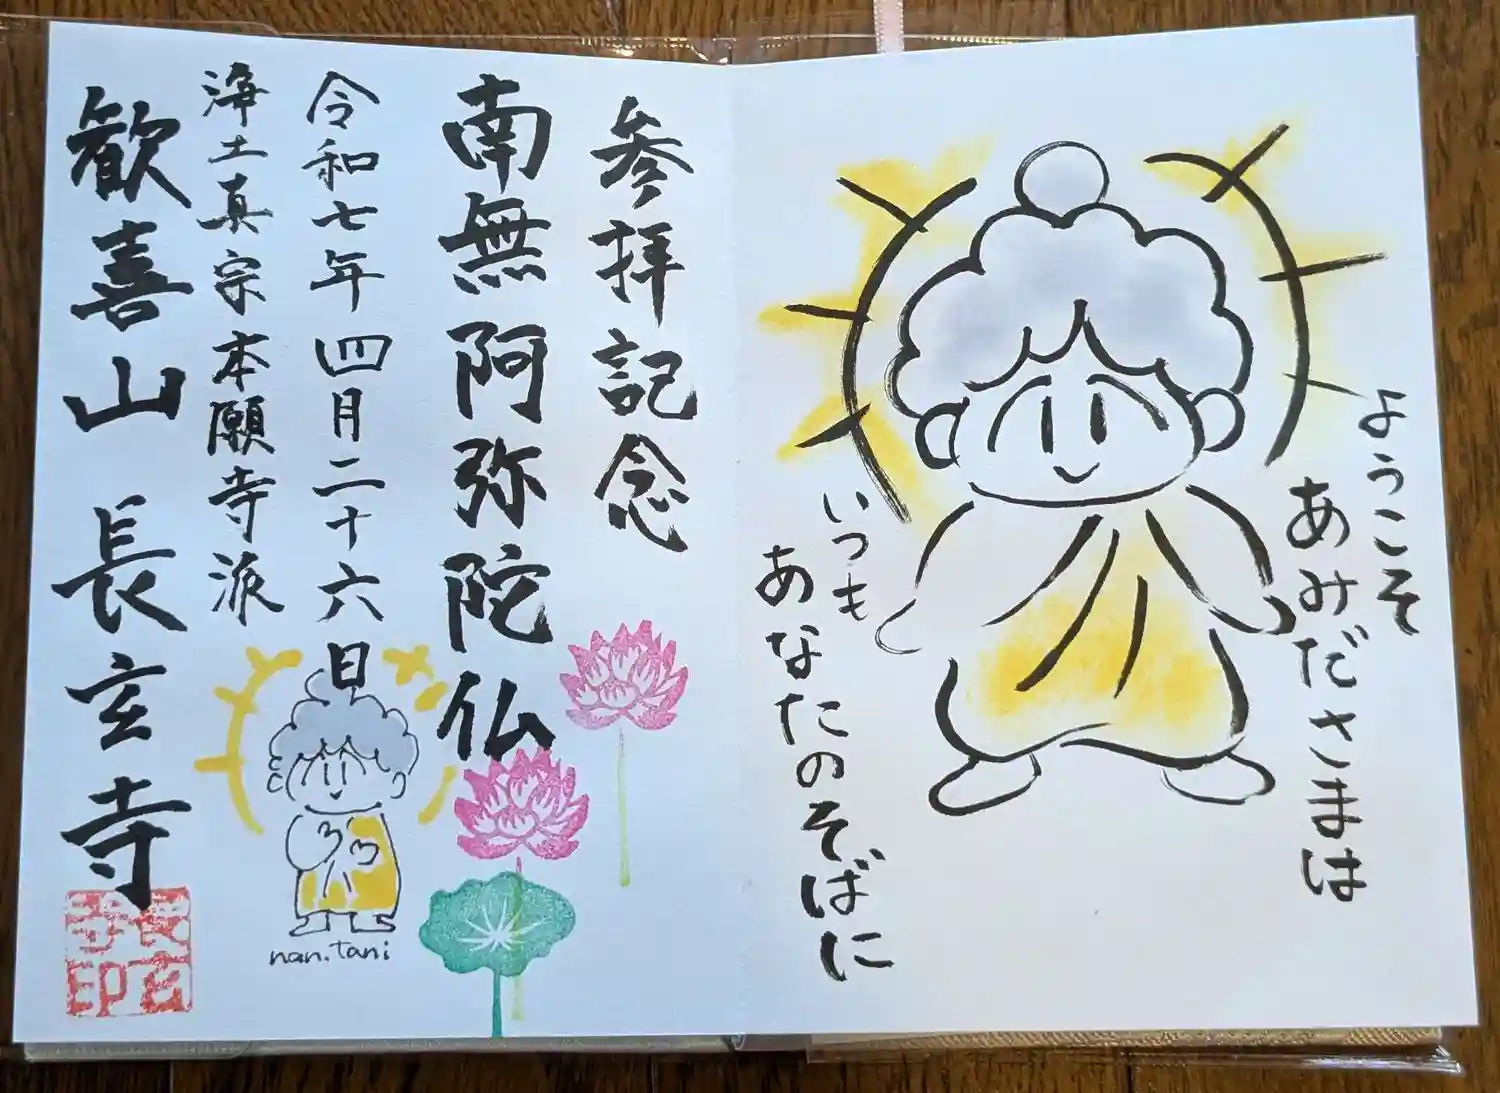 ようこそ
あみださまは
いつも
あなたのそばに
参拝記念
南無阿弥陀仏
令和七年四月二十六日
浄土真宗本願寺派
歓喜山 長玄寺
長玄寺印
nan.tani